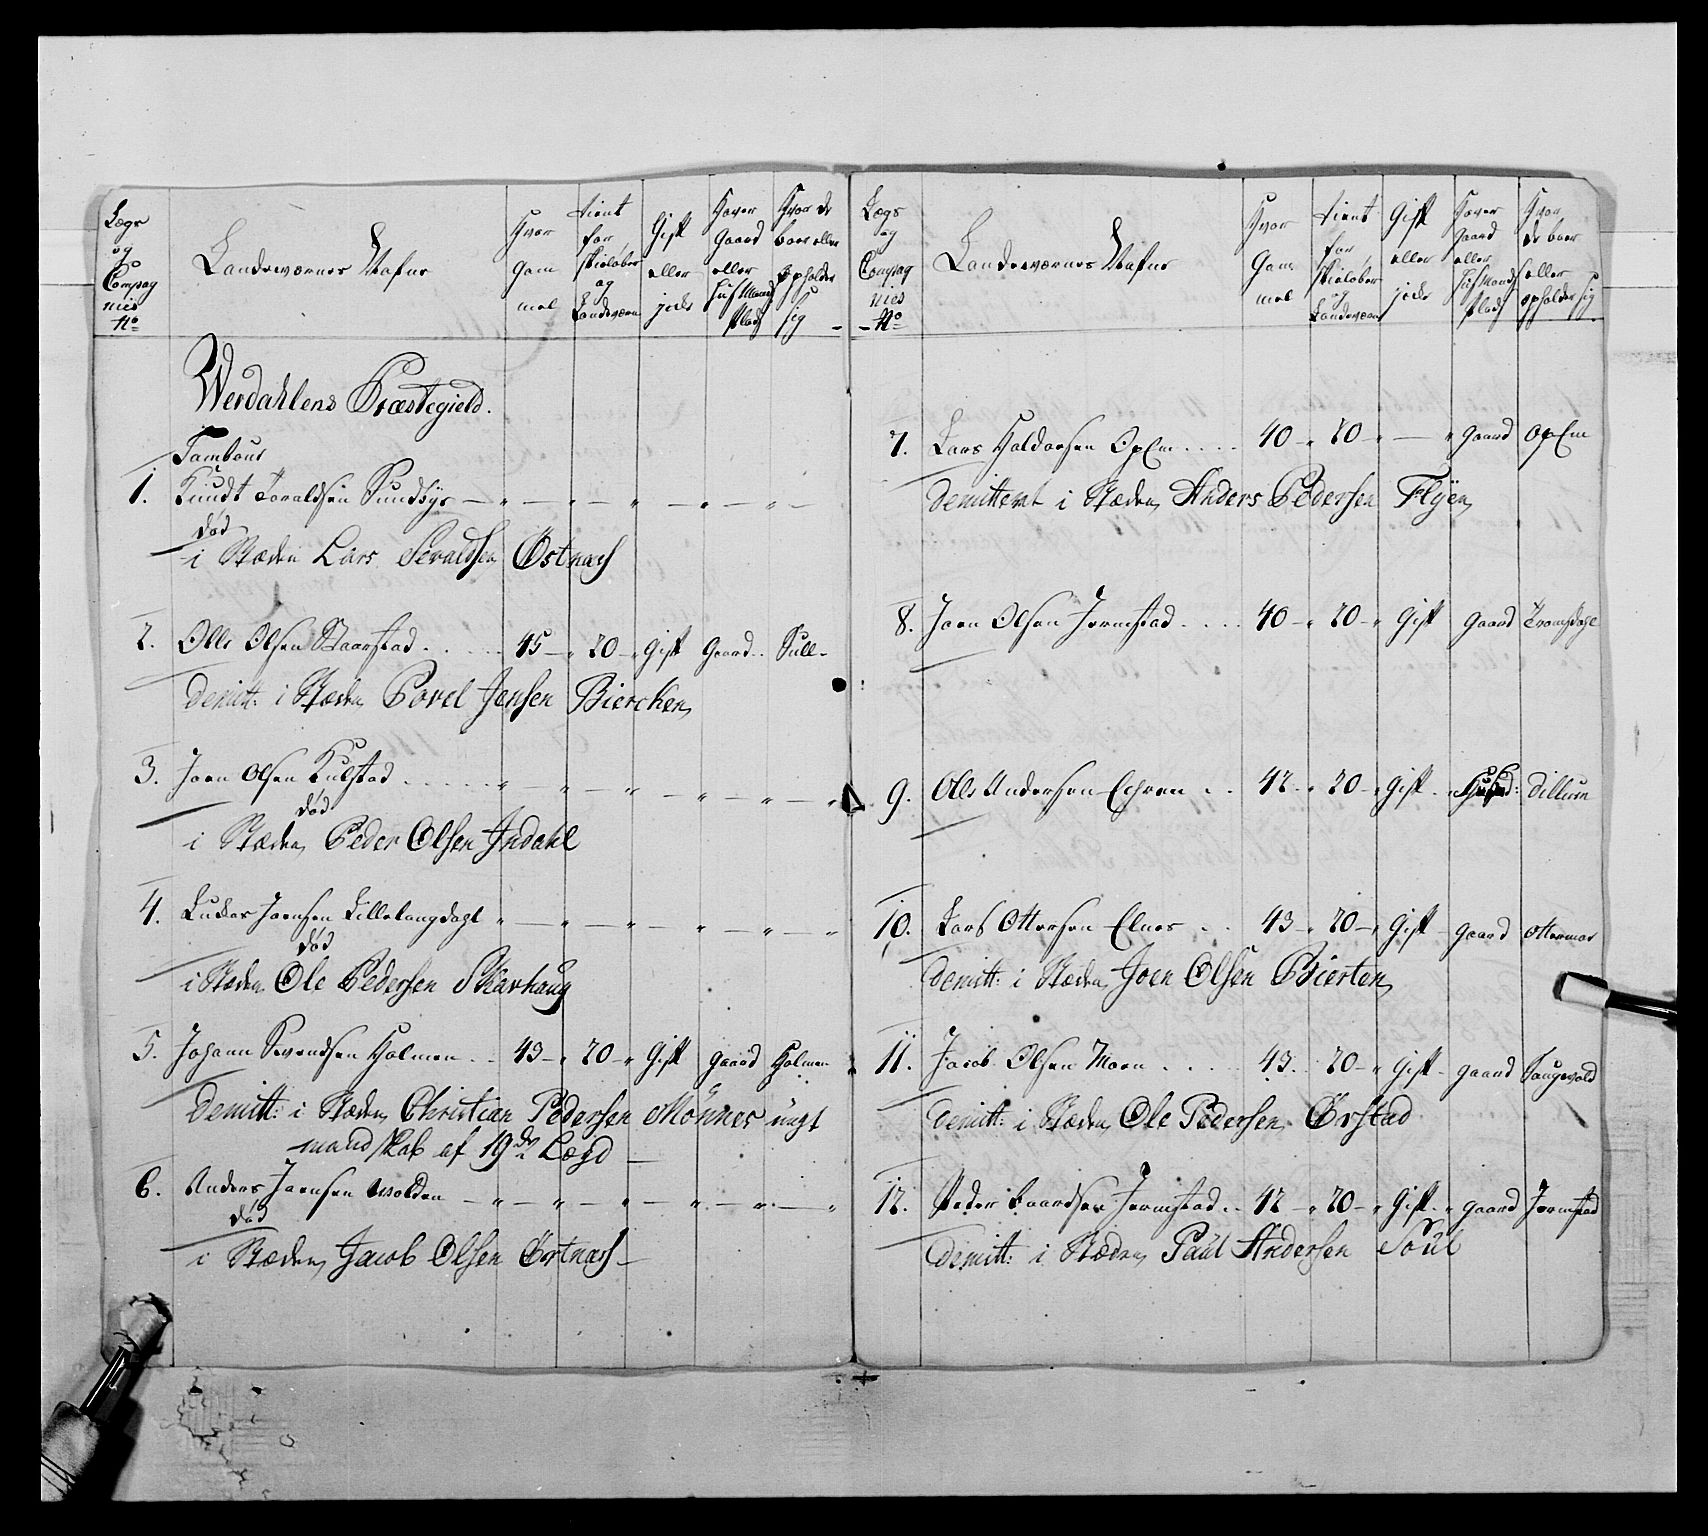 Lægs og Compag nies No
Landeværnes Nafne
Hvor Gam mel
tient for Skieløber og Landeværn
Gift eller jede
Haver Gaard eller Huusmands Plads
Hvor de boer eller opholder sig
Werdahlens Præstegield.
Tambour
1. Knudt Toraldsen Sundbye
død
i Stæden Lars Sevaldsen Østnæs
2. Olle Olsen Staarstad 45 20 Gift Gaard Sull
demitt: i Stæden Povel Jensen Biercken
3. Joen Olsen Kulstad
død
i Stæden Peder Olsen Indahl
4. Luckas Joensen Lillelangdahl
død
i Stæden Ole Pedersen Skavhaug
5. Johann Svendsen Holmen 43 20 Gift gaard Holmen
Demitt: i Stæden Christian Pedersen Mönnes ungt
mandskab af 19de Lægd
6. Anders Joensen Wolden
død
i Stæden Jacob Olsen Østnæs
Lægs og Compag nies No
Landeværnes Nafne
Hvor Gam mel
tient for Skieløber og Landeværn
Gift eller jede
Haver Gaard eller Huusmands Plads
Hvor de boer eller opholder sig
7. Lars Haldorsen OpEm 40 20 gaard OpEm
Demitteret i Stæden Anders Pedersen Flyen
8. Joen Olsen Jermstad 40 20 Gift Gaard Tromsdahl
9. Olle Andersen Echren 42 20 Gift Huusmd: Dillum
10. Lars Ottersen Elnes 43 20 Gift gaard Ottermoe
Demitt: i Stæden Joen Olsen Bierten
11. Jacob Olsen Moen 43 20 Gift gaard Haugvold
Demitt: i Stæden Ole Pedersen Ørstad
12. Peder Baardsen Jermstad 42 20 Gift gaard Jermstad
Demitt: i Stæden Paul Andersen Soul